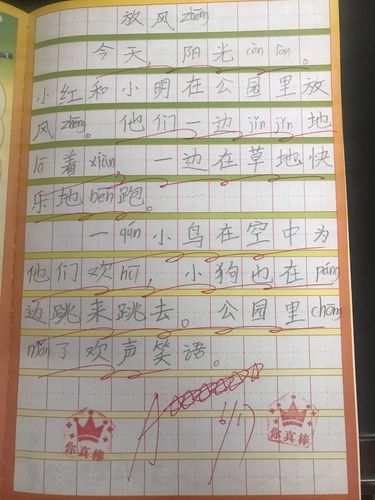 放风zhēng
今天，阳光càn làn。
小红和小明在公园里放
风zhēng。他们一边jǐn jǐn地
lā着xiàn，一边在草地快
乐地bēn跑。
一qún小鸟在空中为
他们欢hū，小狗也在páng
边跳来跳去。公园里chōng
mǎn了欢声笑语。
你真棒
你真棒